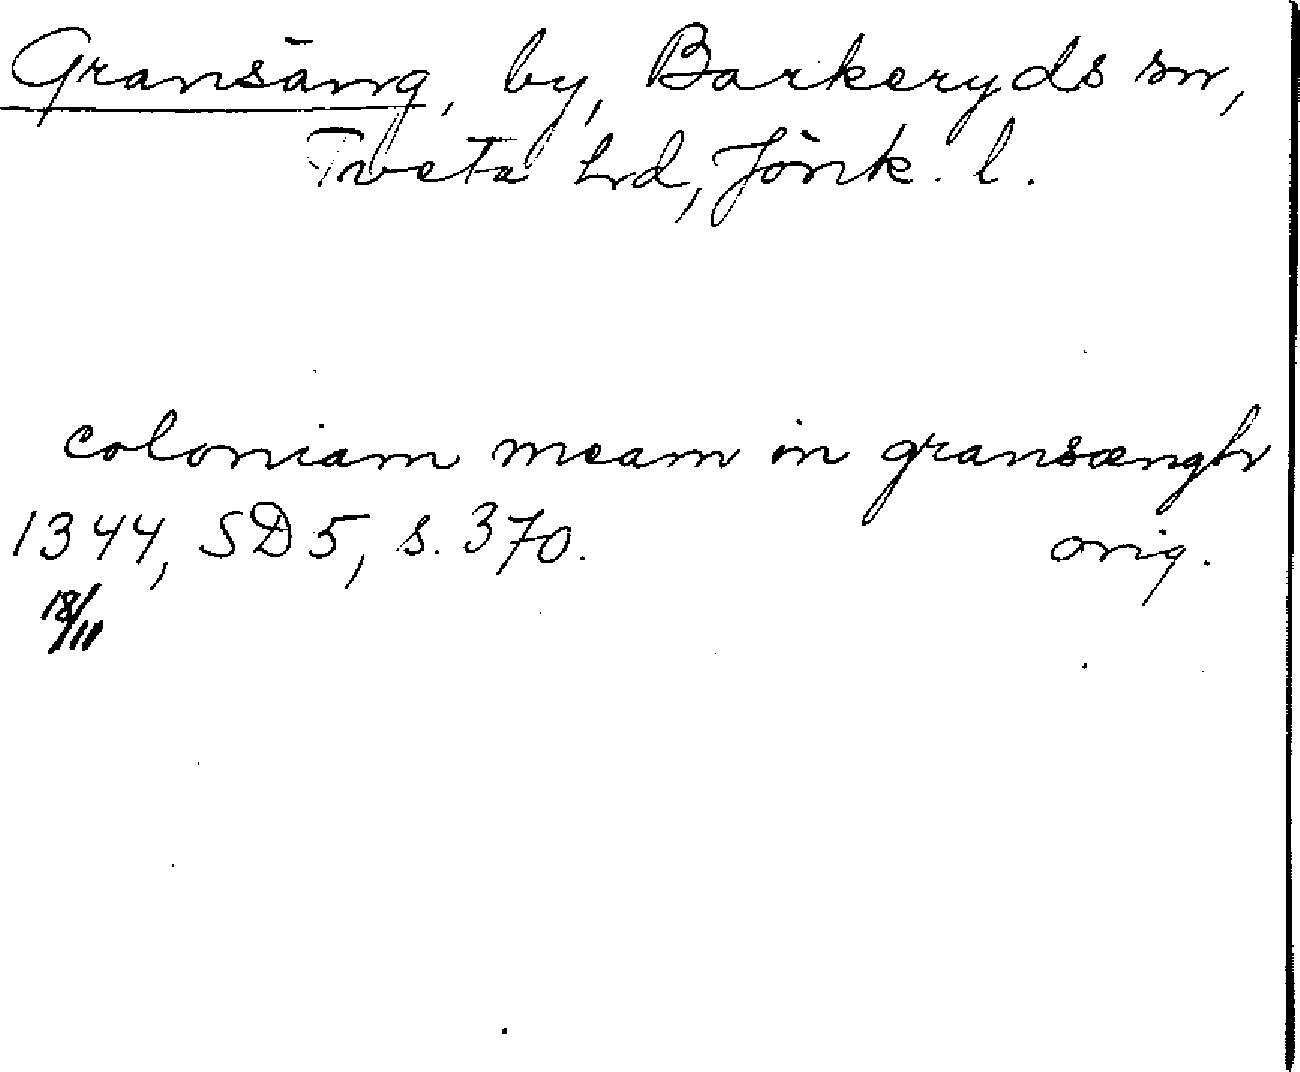 Gransäng, by, Barkeryds sn,
Tveta hd, Jönk. l.
coloniam meam in gransængh
1344, SD 5, s. 370. orig.
18/11